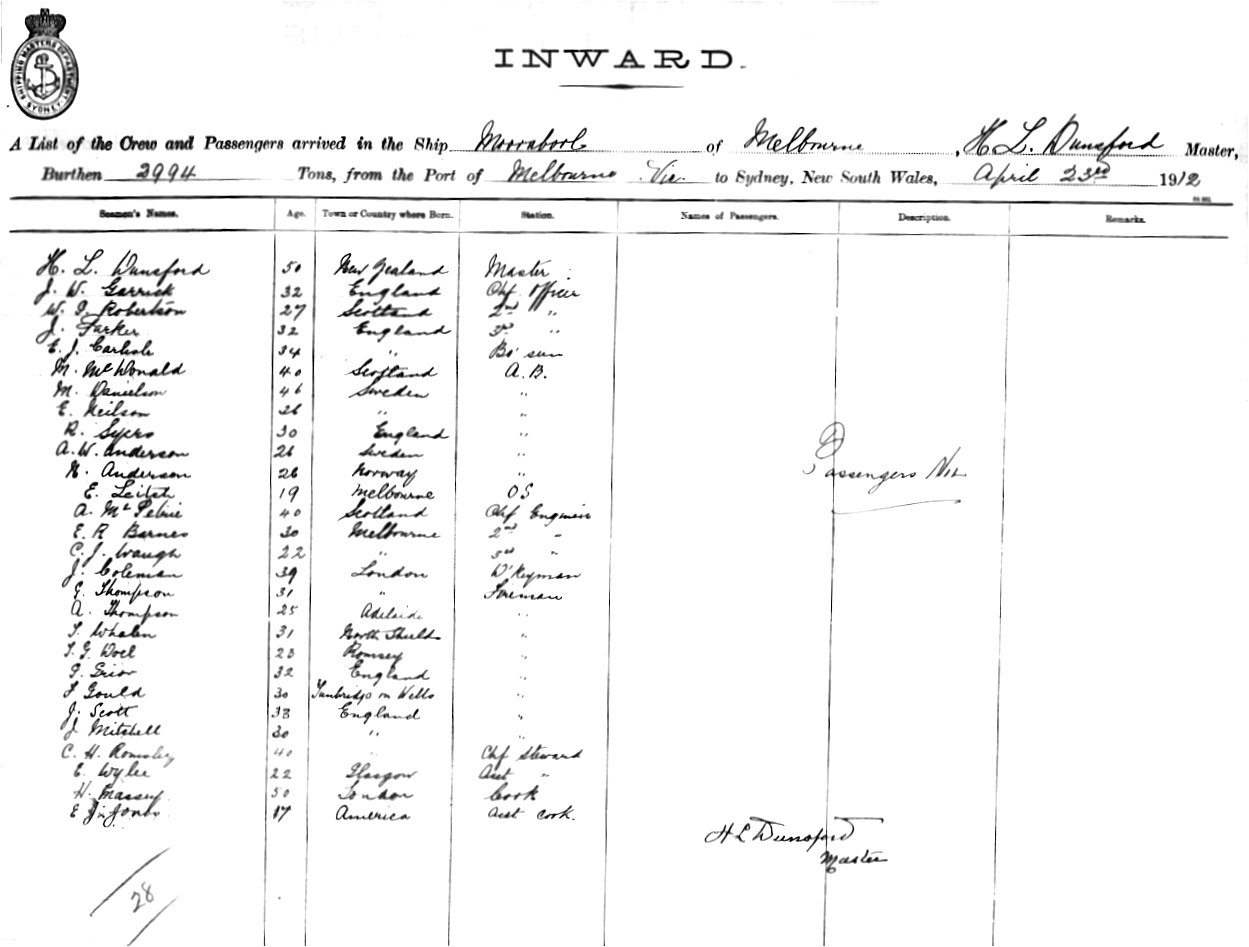 SHIPPING MASTERS DEPARTMENT SYDNEY
INWARD.
A List of the Crew and Passengers arrived in the Ship Moorabool of Melbourne, H. L. Dunsford Master,
Burthen 2994 Tons, from the Port of Melbourne Vic. to Sydney, New South Wales, April 23rd 1912
Seamen's Names. Age. Town or Country where Born. Station. Names of Passengers. Description. Remarks.
H. L. Dunsford 50 New Zealand Master
J. W. Garrick 32 England Chf Officer
W. I. Robertson 27 Scotland 2nd "
J. Parker 32 England 3rd "
E. J. Carlisle 34 " Bo'sun
M. McDonald 40 Scotland A.B.
M. Danielson 46 Sweden "
E. Neilson 26 " "
R. Syers 30 England "
A. W. Anderson 26 Sweden "
N. Anderson 26 Norway "
Passengers Nil
E. Leitch 19 Melbourne OS
A. Mt Petrie 40 Scotland Chf Engineir
E. R Barnes 30 Melbourne 2nd "
C. J. Waugh 22 " 3rd "
J. Coleman 39 London D'Keyman
G. Thompson 31 " Foreman
A. Thompson 25 Adelaide "
T. Whalen 31 North Shields "
T. G. Woel 23 Romsey "
G. Grior 32 England "
F Gould 30 Tunbridge on Wells "
J. Scott 38 England "
J Mitchell 30 " "
C. H. Romsley 40 " Chf Steward
E. Wylee 22 Glasgow Asst "
H. Massey 50 London Cook
E. J. Jones 17 America Asst Cook.
H L Dunsford
Master
28